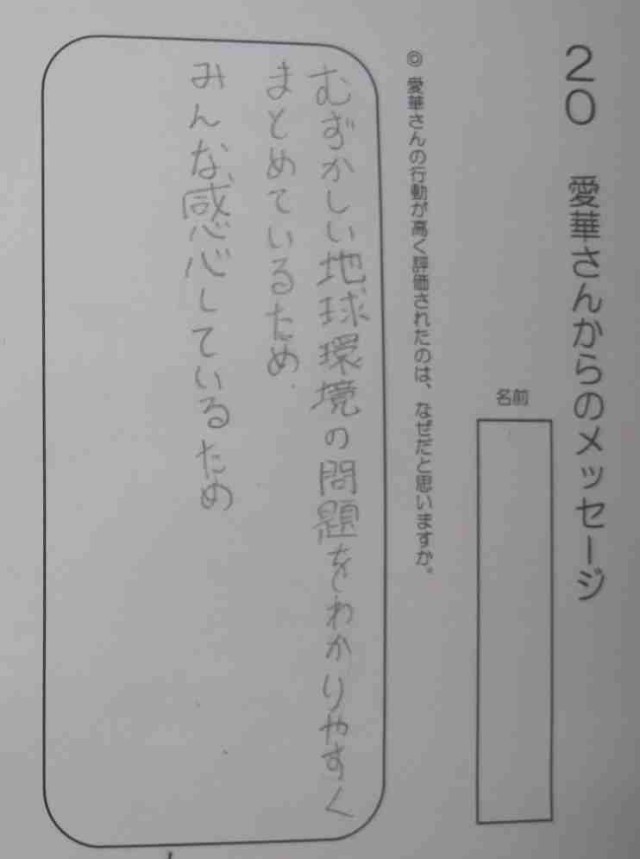 20 愛華さんからのメッセージ
名前
◎ 愛華さんの行動が高く評価されたのは、なぜだと思いますか。
むずかしい地球環境の問題をわかりやすく
まとめているため.
みんな、感心しているため